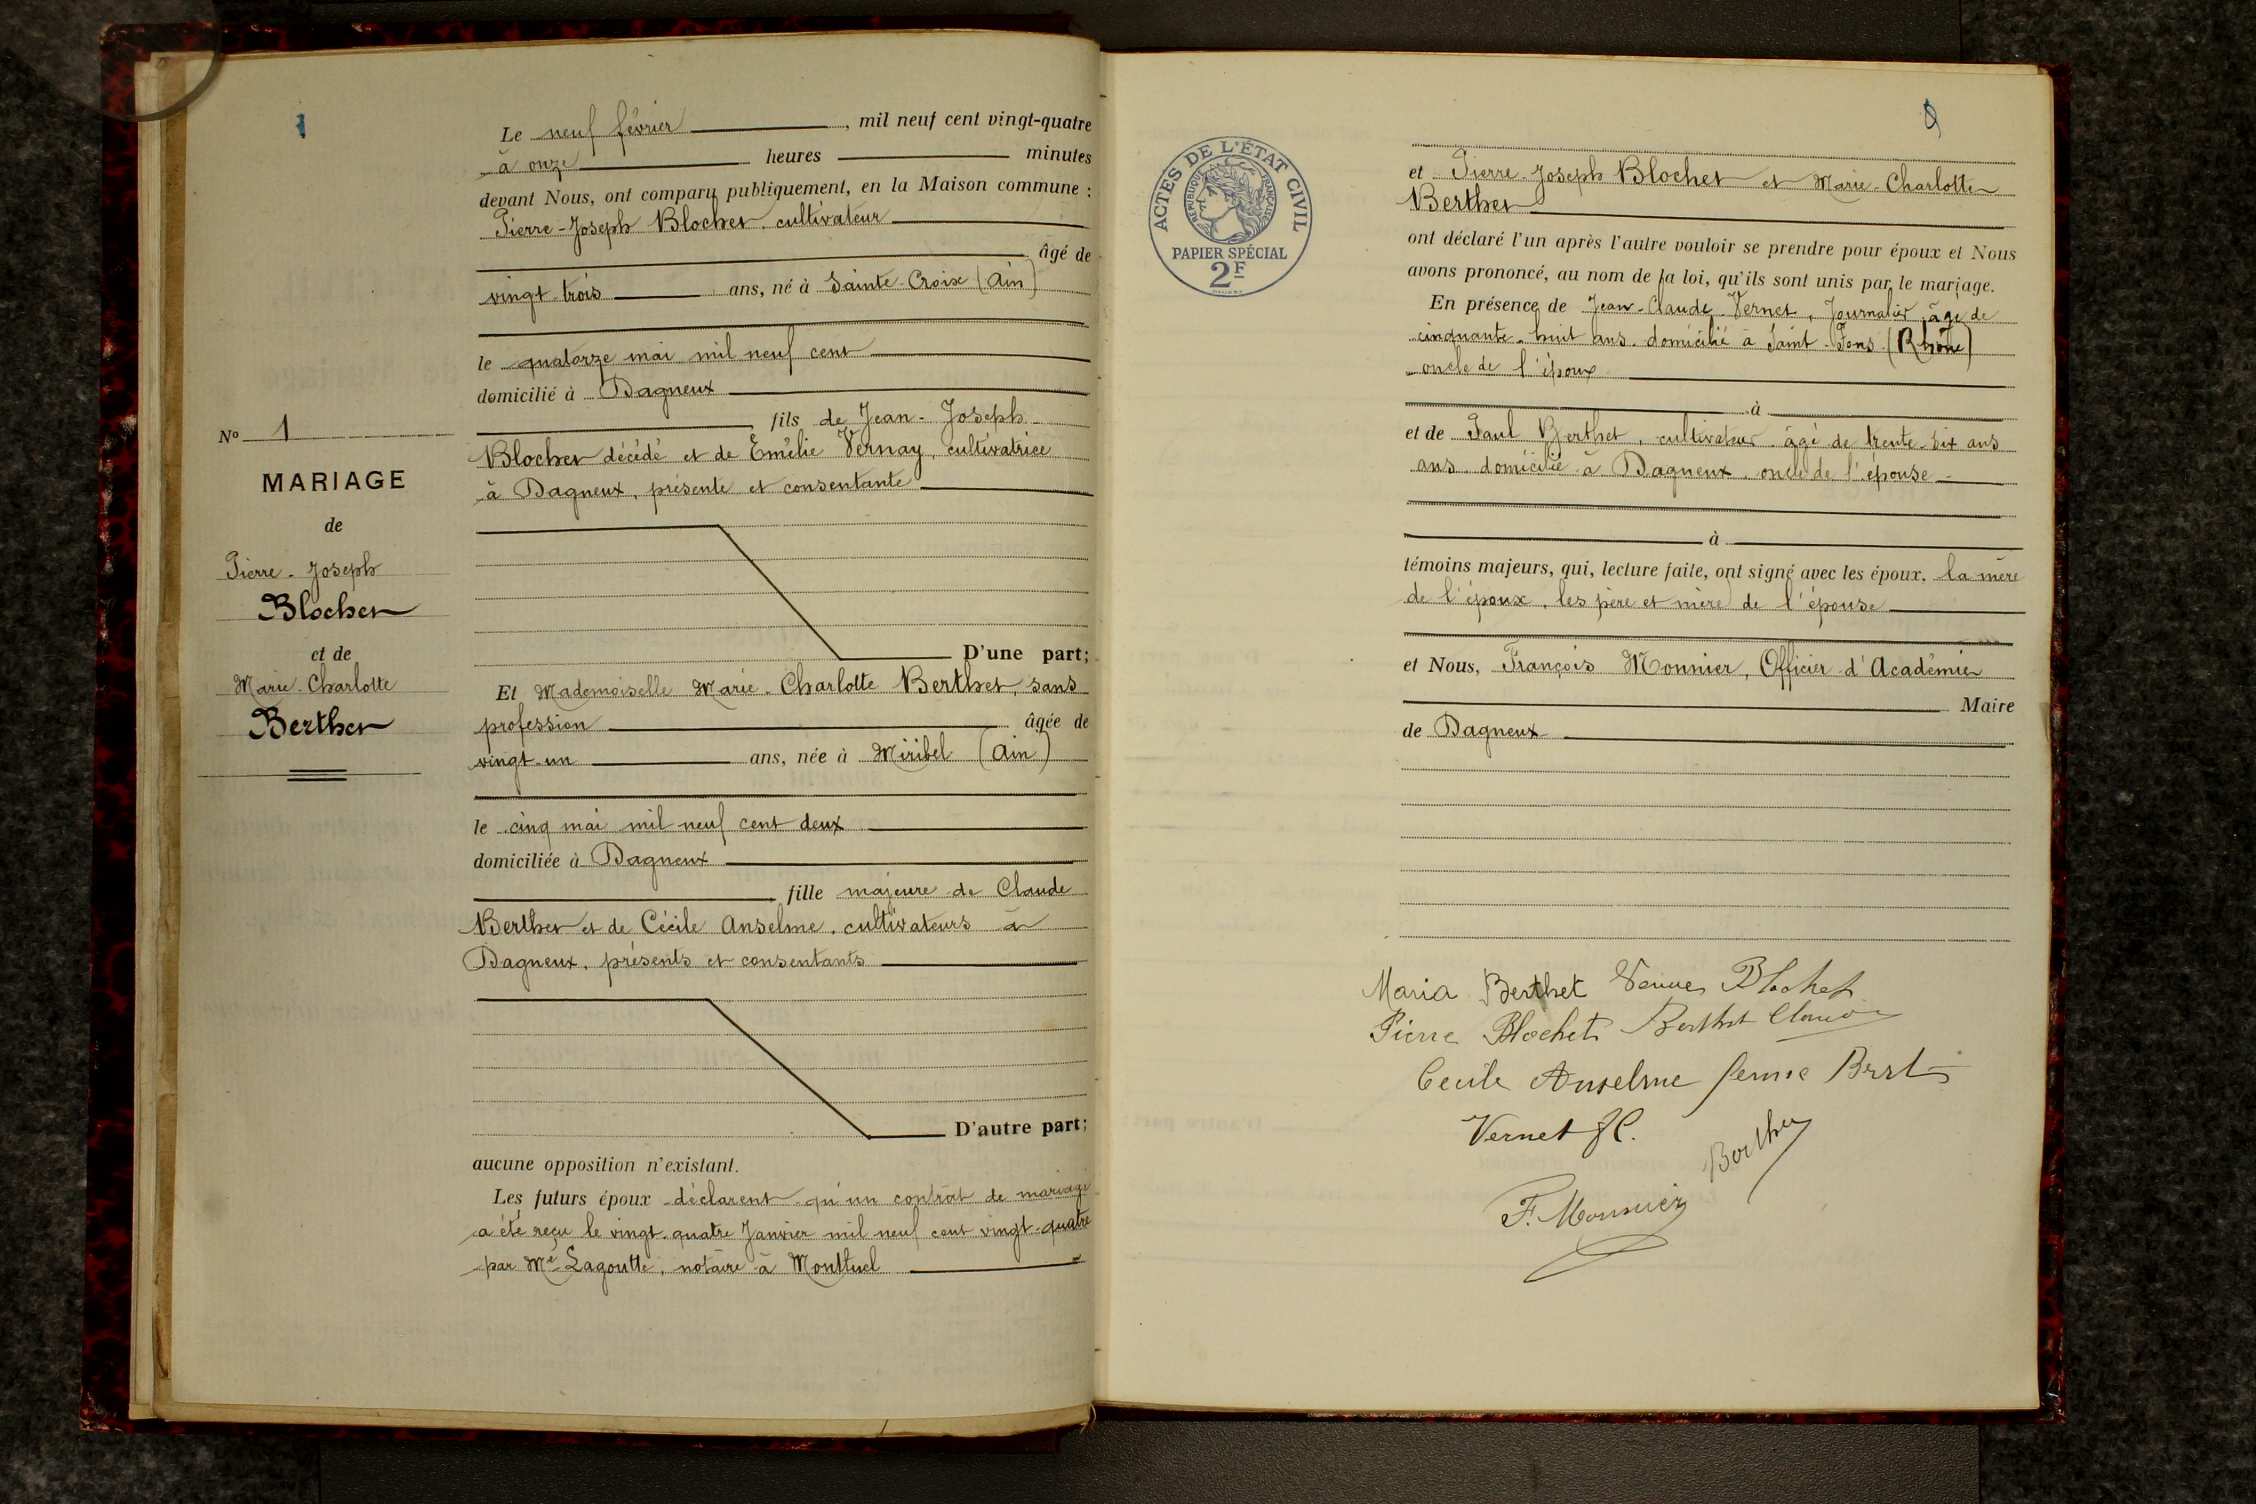 1
Le neuf février, mil neuf cent vingt-quatre
à onze heures minutes
devant Nous, ont comparu publiquement, en la Maison commune :
Pierre-Joseph Blochet. cultivateur
âgé de
vingt-trois ans, né à Sainte-Croix (Ain)
le quatorze mai mil neuf cent
domicilié à Dagneux
fils de Jean-Joseph
Blochet décédé et de Emélie Vernay, cultivatrice
à Dagneux, présente et consentante
D'une part;
Et Mademoiselle Marie-Charlotte Berthet, sans
profession âgée de
vingt-un ans, née à Miribel (Ain)
le cinq mai mil neuf cent deux
domiciliée à Dagneux
fille majeure de Claude
Berthet et de Cécile Anselme, cultivateurs à
Dagneux, présents et consentants
D'autre part;
aucune opposition n'existant.
Les futurs époux déclarent qu'un contrat de mariage
a été reçu le vingt-quatre Janvier mil neuf cent vingt-quatre
par Me Lagoutte, notaire à Montluel
No 1
MARIAGE
de
Pierre-Joseph
Blochet
et de
Marie-Charlotte
Berthet
ACTES DE L'ÉTAT CIVIL
RÉPUBLIQUE FRANÇAISE
PAPIER SPÉCIAL
2F
et Pierre-Joseph Blochet et Marie-Charlotte
Berthet
ont déclaré l'un après l'autre vouloir se prendre pour époux et Nous
avons prononcé, au nom de la loi, qu'ils sont unis par le mariage.
En présence de Jean-Claude Vernet, Journalier, âgé de
cinquante-huit ans. domicilié à Saint-Fons (Rhône)
oncle de l'époux
à
et de Paul Berthet, cultivateur âgé de trente-six ans
ans domicilié à Dagneux, oncle de l'épouse
à
témoins majeurs, qui, lecture faite, ont signé avec les époux. la mère
de l'époux, les père et mère de l'épouse
et Nous, François Monnier, Officier d'Académie
Maire
de Dagneux
Maria Berthet Veuve Blochet
Pierre Blochet Berthet Claude
Cecile Anselme femme
Vernet J C.
Berthet
F. Monnier